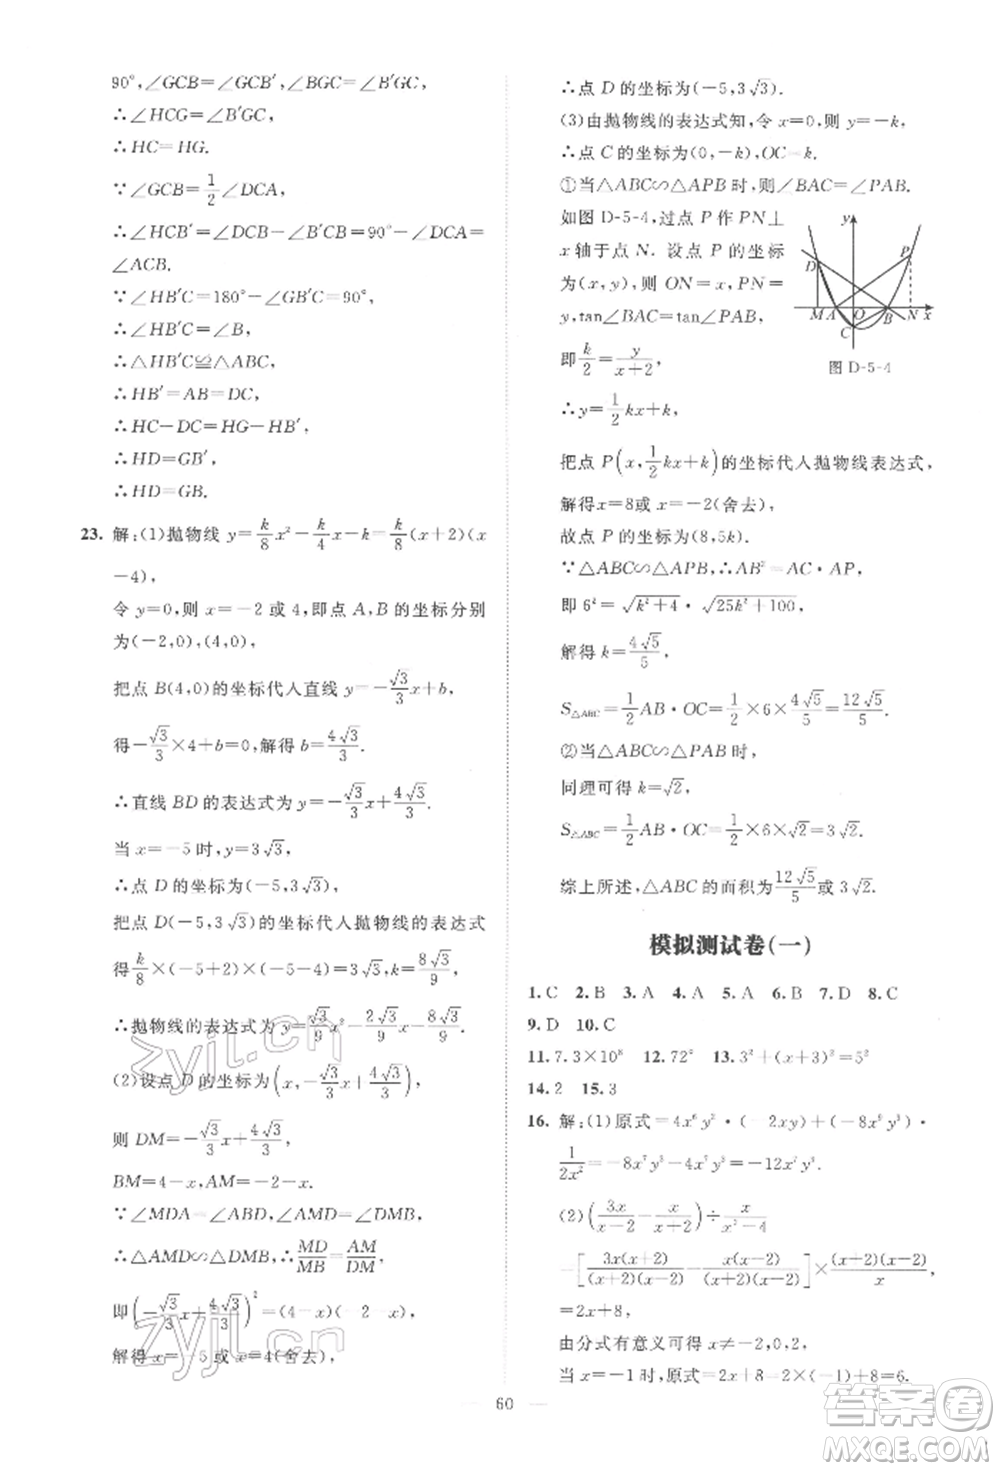 90°,∠GCB=∠GCB′,∠BGC=∠B′GC,
∴∠HCG=∠B′GC,
∴HC=HG.
∵∠GCB=1/2∠DCA,
∴∠HCB′=∠DCB-∠DCB′=90°-∠DCA=
∠ACB.
∴∠HB′C=180°-∠GB′C=90°,
∴∠HB′C=∠B,
∴△HB′C≌△ABC,
∴HB′=AB=DC,
∴HC-DC=HG-HB′,
∴HD=GB′,
∴HD=GB.
23. 解:(1)抛物线 y=k/8 x²-k/4 x-k=k/8(x+2)(x
-4),
令 y=0,则 x=-2 或 4,即点 A,B 的坐标分别
为(-2,0),(4,0),
把点 B(4,0)的坐标代人直线 y=-√3/3 x+b,
得-√3/3×4+b=0,解得 b=4√3/3.
∴直线 BD 的表达式为 y=-√3/3 x+4√3/3.
当 x=-5 时,y=3√3.
∴点 D 的坐标为(-5,3√3).
把点 D(-5,3√3)的坐标代人抛物线的表达式
得 k/8×(-5+2)(-5-4)=3√3,∴k=8√3/9.
∴抛物线的表达式为 y=√3/9 x²-2√3/9 x-8√3/9.
(2)设点 D 的坐标为(x,-√3/3 x+4√3/3),
则 DM=-√3/3 x+4√3/3,AM=-2-x,
BM=4-x,
∵∠MDA=∠ABD,∠AMD=∠DMB,
∴△AMD∽△DMB,∴MD/MB=AM/DM,
即(-√3/3 x+4√3/3)²=(4-x)(-2-x)
解得 x=-5 或 x=4(舍去)
∴点 D 的坐标为(-5,3√3).
(3)由抛物线的表达式知,令 x=0,则 y=-k,
∴点 C 的坐标为(0,-k),OC=k.
①当△ABC∽△APB 时,则∠BAC=∠PAB.
如图 D-5-4,过点 P 作 PN⊥
x 轴于点 N. 设点 P 的坐标
为(x,y),则 ON=x,PN=
y,tan∠BAC=tan∠PAB,
即 k/2=y/(x+2),
∴y=1/2 kx+k,
y
D
P
M A O B N x
C
图 D-5-4
把点 P(x,1/2 kx+k)的坐标代人抛物线表达式,
解得 x=8或 x=-2(舍去),
故点 P 的坐标为(8,5k).
∵△ABC∽△APB,∴AB²=AC·AP,
即 6²=√(k²+4)·√(25k²+100),
解得 k=4√5/5,
S△ABC=1/2 AB·OC=1/2×6×4√5/5=12√5/5.
②当△ABC∽△PAB 时,
同理可得 k=√2,
S△ABC=1/2 AB·OC=1/2×6×√2=3√2.
综上所述,△ABC 的面积为12√5/5或 3√2.
模拟测试卷(一)
1.C 2.B 3.A 4.A 5.A 6.B 7.D 8.C
9.D 10.C
11.7.3×10⁸ 12.72° 13.3²+(x+3)²=5²
14.2 15.3
16. 解:(1)原式=4x⁶y²·(-2xy)+(-8x⁹y³)·
1/(2x²)=-8x⁷y³-4x⁷y³=-12x⁷y³.
(2)(3x/(x-2)-x/(x+2))÷x/(x²-4)
=[3x(x+2)/((x+2)(x-2))-x(x-2)/((x+2)(x-2))]×(x+2)(x-2)/x,
=2x+8,
由分式有意义可得 x≠-2,0,2,
当 x=-1时,原式=2x+8=2×(-1)+8=6.
60
zyjl.cn
zyjl.cn
答案圈
MXQE.COM